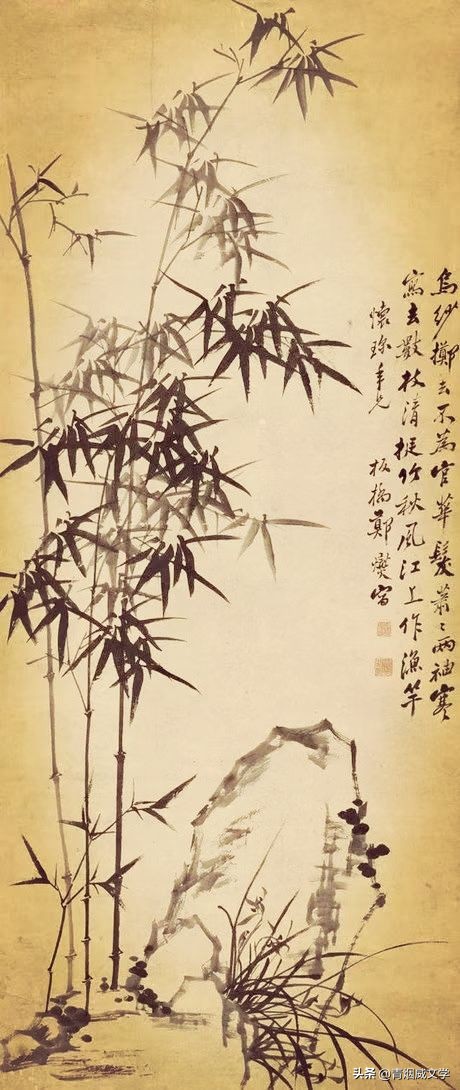 烏紗擲去不為官華髮蕭〻兩袖寒
寫去數枝清挺竹秋風江上作漁竿
懷珍年兄 板橋鄭燮寫
头条 @青烟威文学